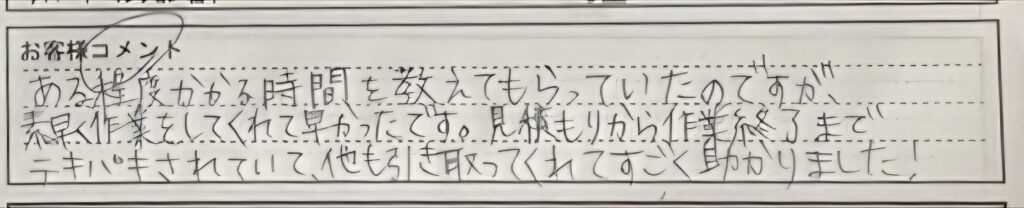 お客様コメント
ある程度かかる時間を教えてもらっていたのですが、
素早く作業をしてくれて早かったです。見積もりから作業終了まで
テキパキされていて、他も引き取ってくれてすごく助かりました!